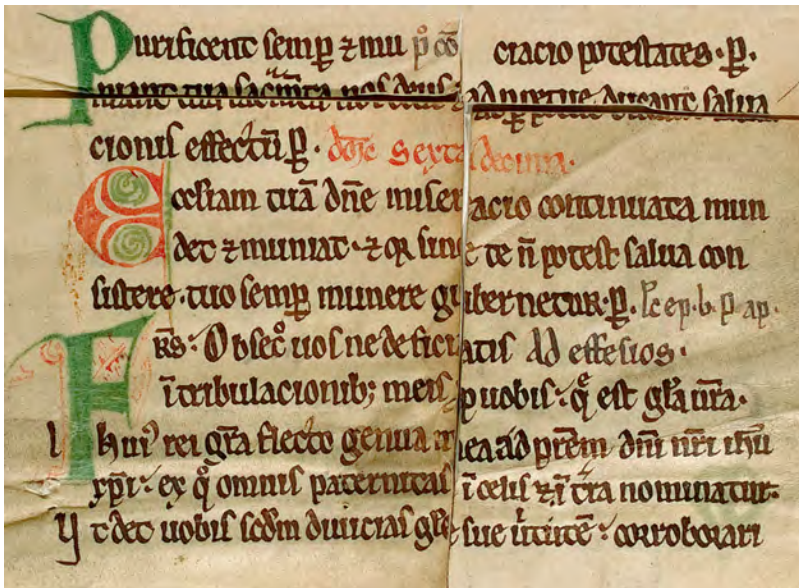 Purificent semꝑ ⁊ mu p̊ cō cracio potestates · ꝑ ·
niant tua sac̄m̄ta nos deus ⁊ ad ꝑpetue ducant salua
cionis effectū ꝑ · dn̄ic sexta decima ·
Ecc̄liam tuā dn̄e miser acio continuata mun
det ⁊ muniat · ⁊ qꝛ sine te n̄ potest salua con
sistere · tuo semꝑ munere gubernetur · ꝑ · lc̄ ep · b · p ap ·
FRS · Obsec̊ uos ne deficiatis Ad effesios ·
ītribulacionib; meis ꝓ uobis · q̄ est gl̄a ur̄a ·
huiꝰ rei gr̄a flecto genua mea ad pr̄em dn̄i nr̄i ih̄u
xp̄i · ex q̊ omnis paternitas ī celis ⁊ ī tr̄a nominatur ·
Vt det uobis scd̄m diuicias gl̄e sue u̓tutē · corroborari